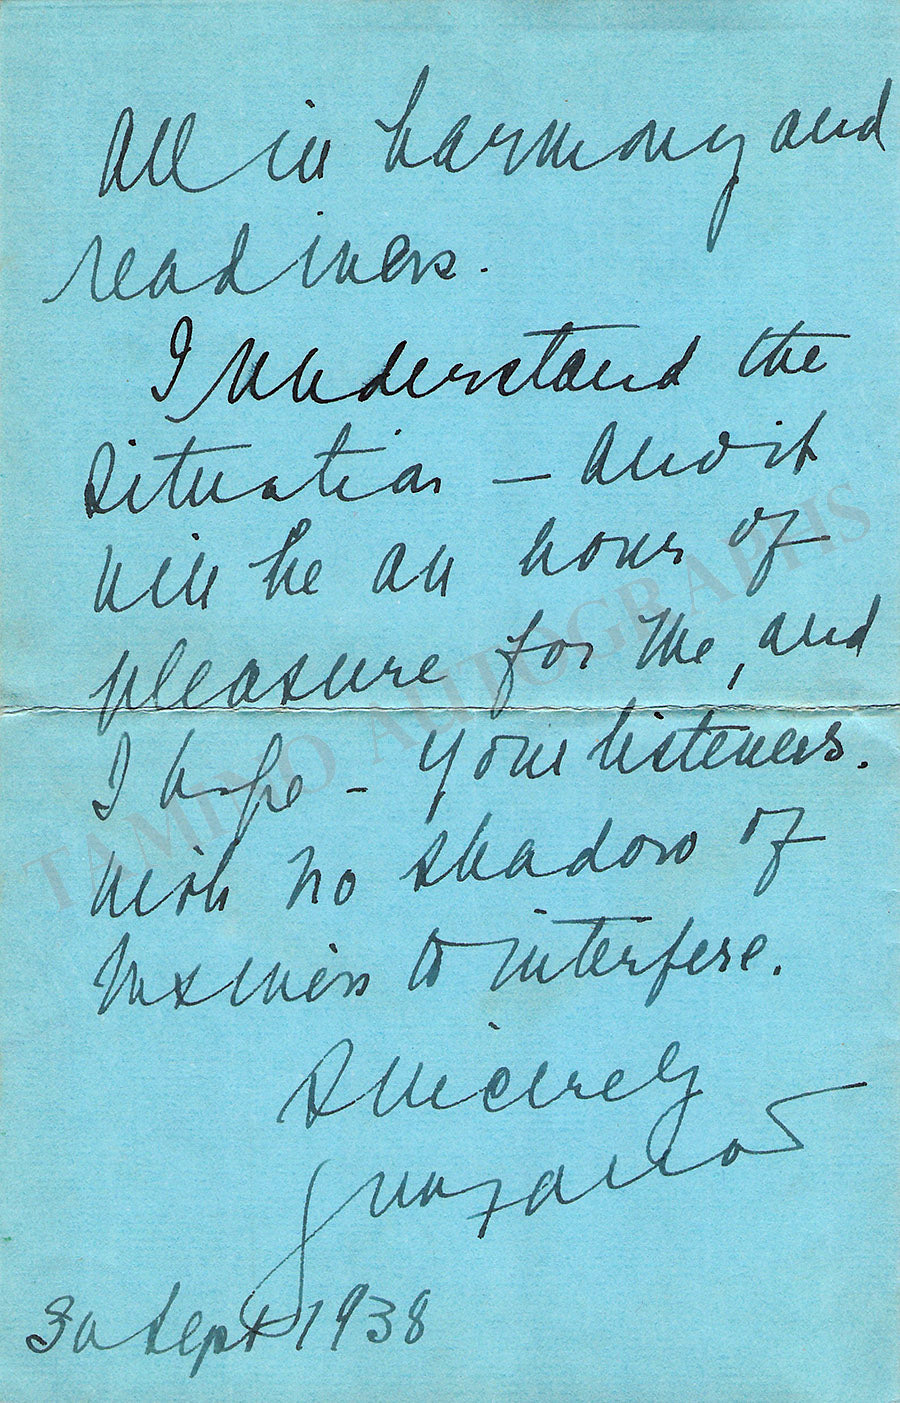 All in harmony and
readiness.
I understand the
situation — and it
will be an hour of
pleasure for me, and
I hope – your listeners.
With no shadow of
business to interfere.
Sincerely
30 Sept 1938
TAMINO AUTOGRAPHS